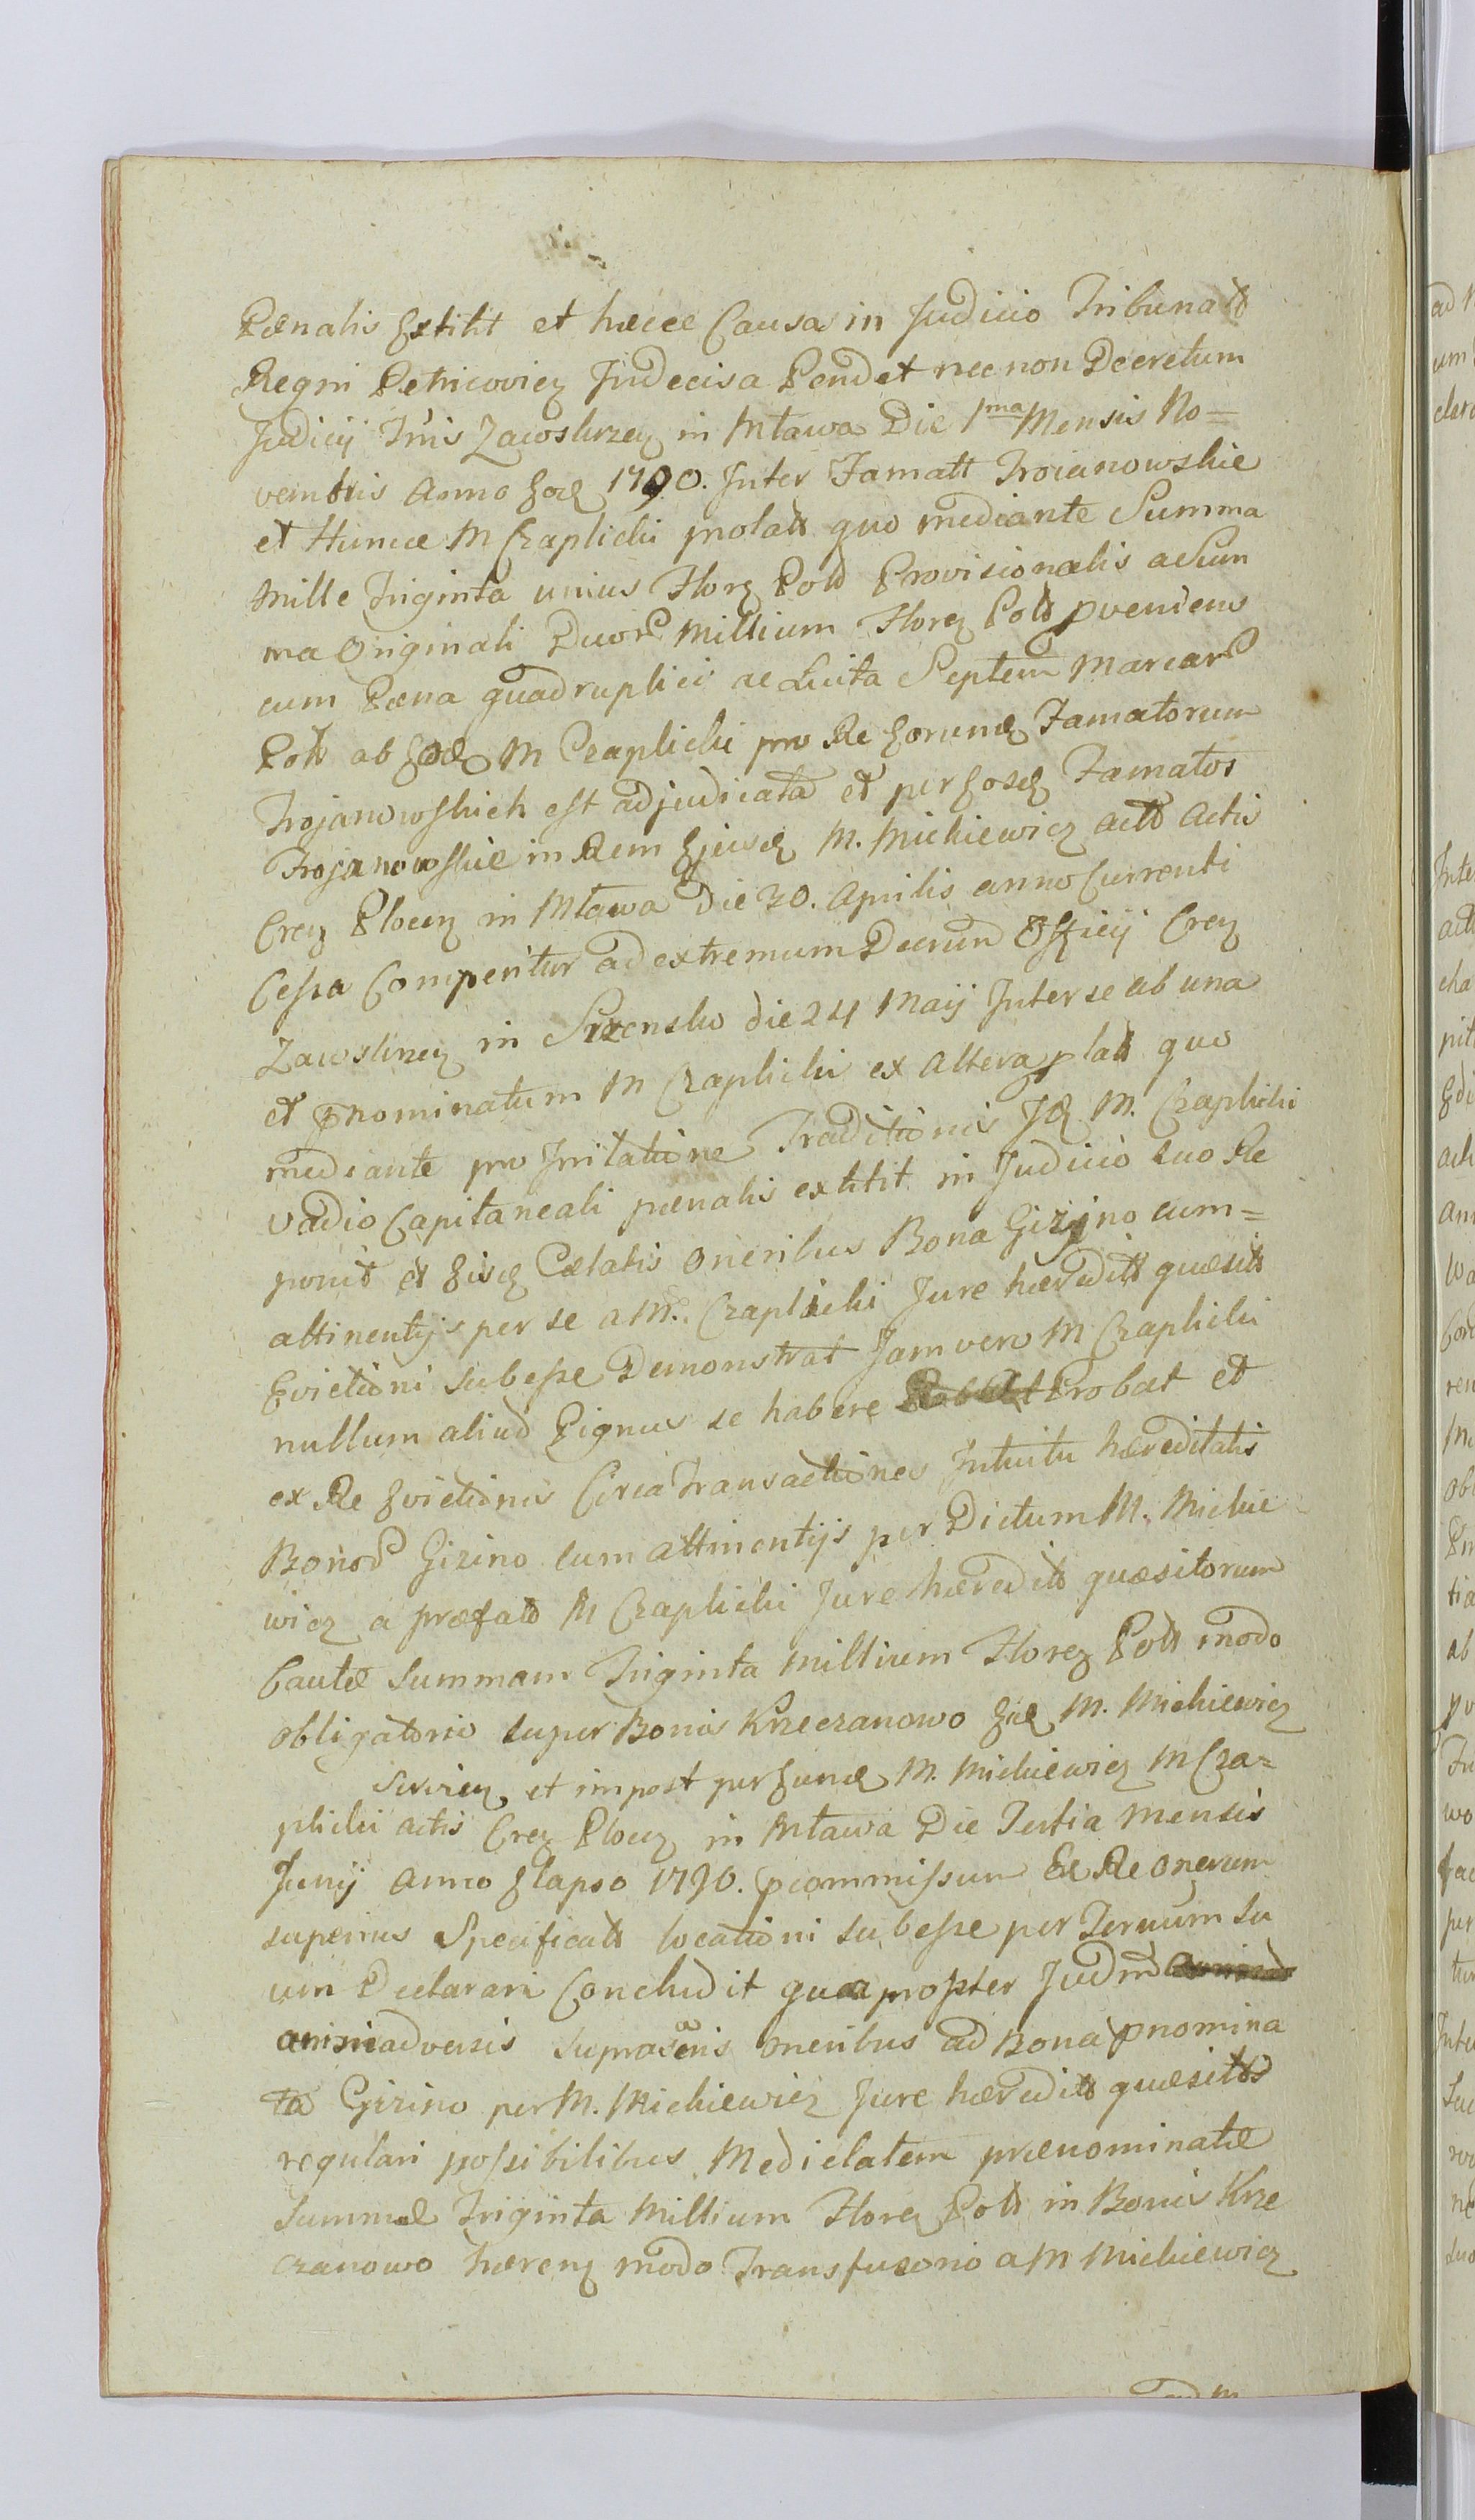 Pœnalis Extitit et hæcce Causa in Judicio Tribunalt
Regni Petricovien Indecisa Pendet nec non Decretum
Judicij Tris Zawskrzen in Mława Die 1ma Mensis No=
vembris Anno Eod 1790. Inter Famatt Troianowskie
et Hunc M Czaplicki prolatt quo mediante Summa
Mille Triginta unius Floren Polł Provisionalis a Sum
ma Originali Duor Millium Floren Polł pveniens
cum Pœna quadruplici ac Lucta Septem Marcar
Polł ab Eod M Czaplicki pro Re Eorumd Famatorum
Trojanowskich est adjudicata et per Eosd Famatos
Trojanowskie in Rem Ejusd M. Mickiewicz actt Actis
Cren Plocen in Mława Die 30. Aprilis anno Currenti
Cessa Comperitur ad extremum Decrum Officij Cren
Zawskrzen in Szrensko die 24 Maij Inter se ab una
et pnominatum M Czaplicki ex Altera platt quo
mediante pro Irritatione Traditionis Id M. Czaplicki
vadio Capitaneali pœnalis extitit in Judicio suo Re
ponit et Eisd Cælatis Oneribus Bona Gizyno cum=
attinentijs per se a M. Czaplicki Jure hæreditt quæsitt
Evictioni subesse Demonstrat Jam vero M Czaplicki
nullum aliud Pignus se habere Probat et
ex Re Evictionis Circa Transactiones Intuitu hæreditatis
Bonor Gizino cum attinentijs per Dictum M. Mickie
wicz a præfato M Czaplicki Jure hæreditt quæsitorum
Cautæ Summam Triginta Millium Floren Polł modo
obligatorio super Bonis Krzeczanowo Eid M. Mickiewicz
Servien et impost per Eund M. Mickiewicz M Cza=
plicki actis Cren Plocen in Mława Die Tertia Mensis
Junij Anno Elapso 1790. pcommissum Ex Re Onerum
superius Specificatt locationi subesse per Ternum su
um Declarari Concludit qua propter Judm
animadversis suprascris oneribus ad Bona pnomina
ta Gizino per M. Mickiewicz Jure hæreditt quæsitts
regulari possibilibus Medietatem prænominatæ
Summæ Triginta Millium Floren Polł in Bonis Krze
czanowo hæren modo Transfusorio a M Mickiewicz